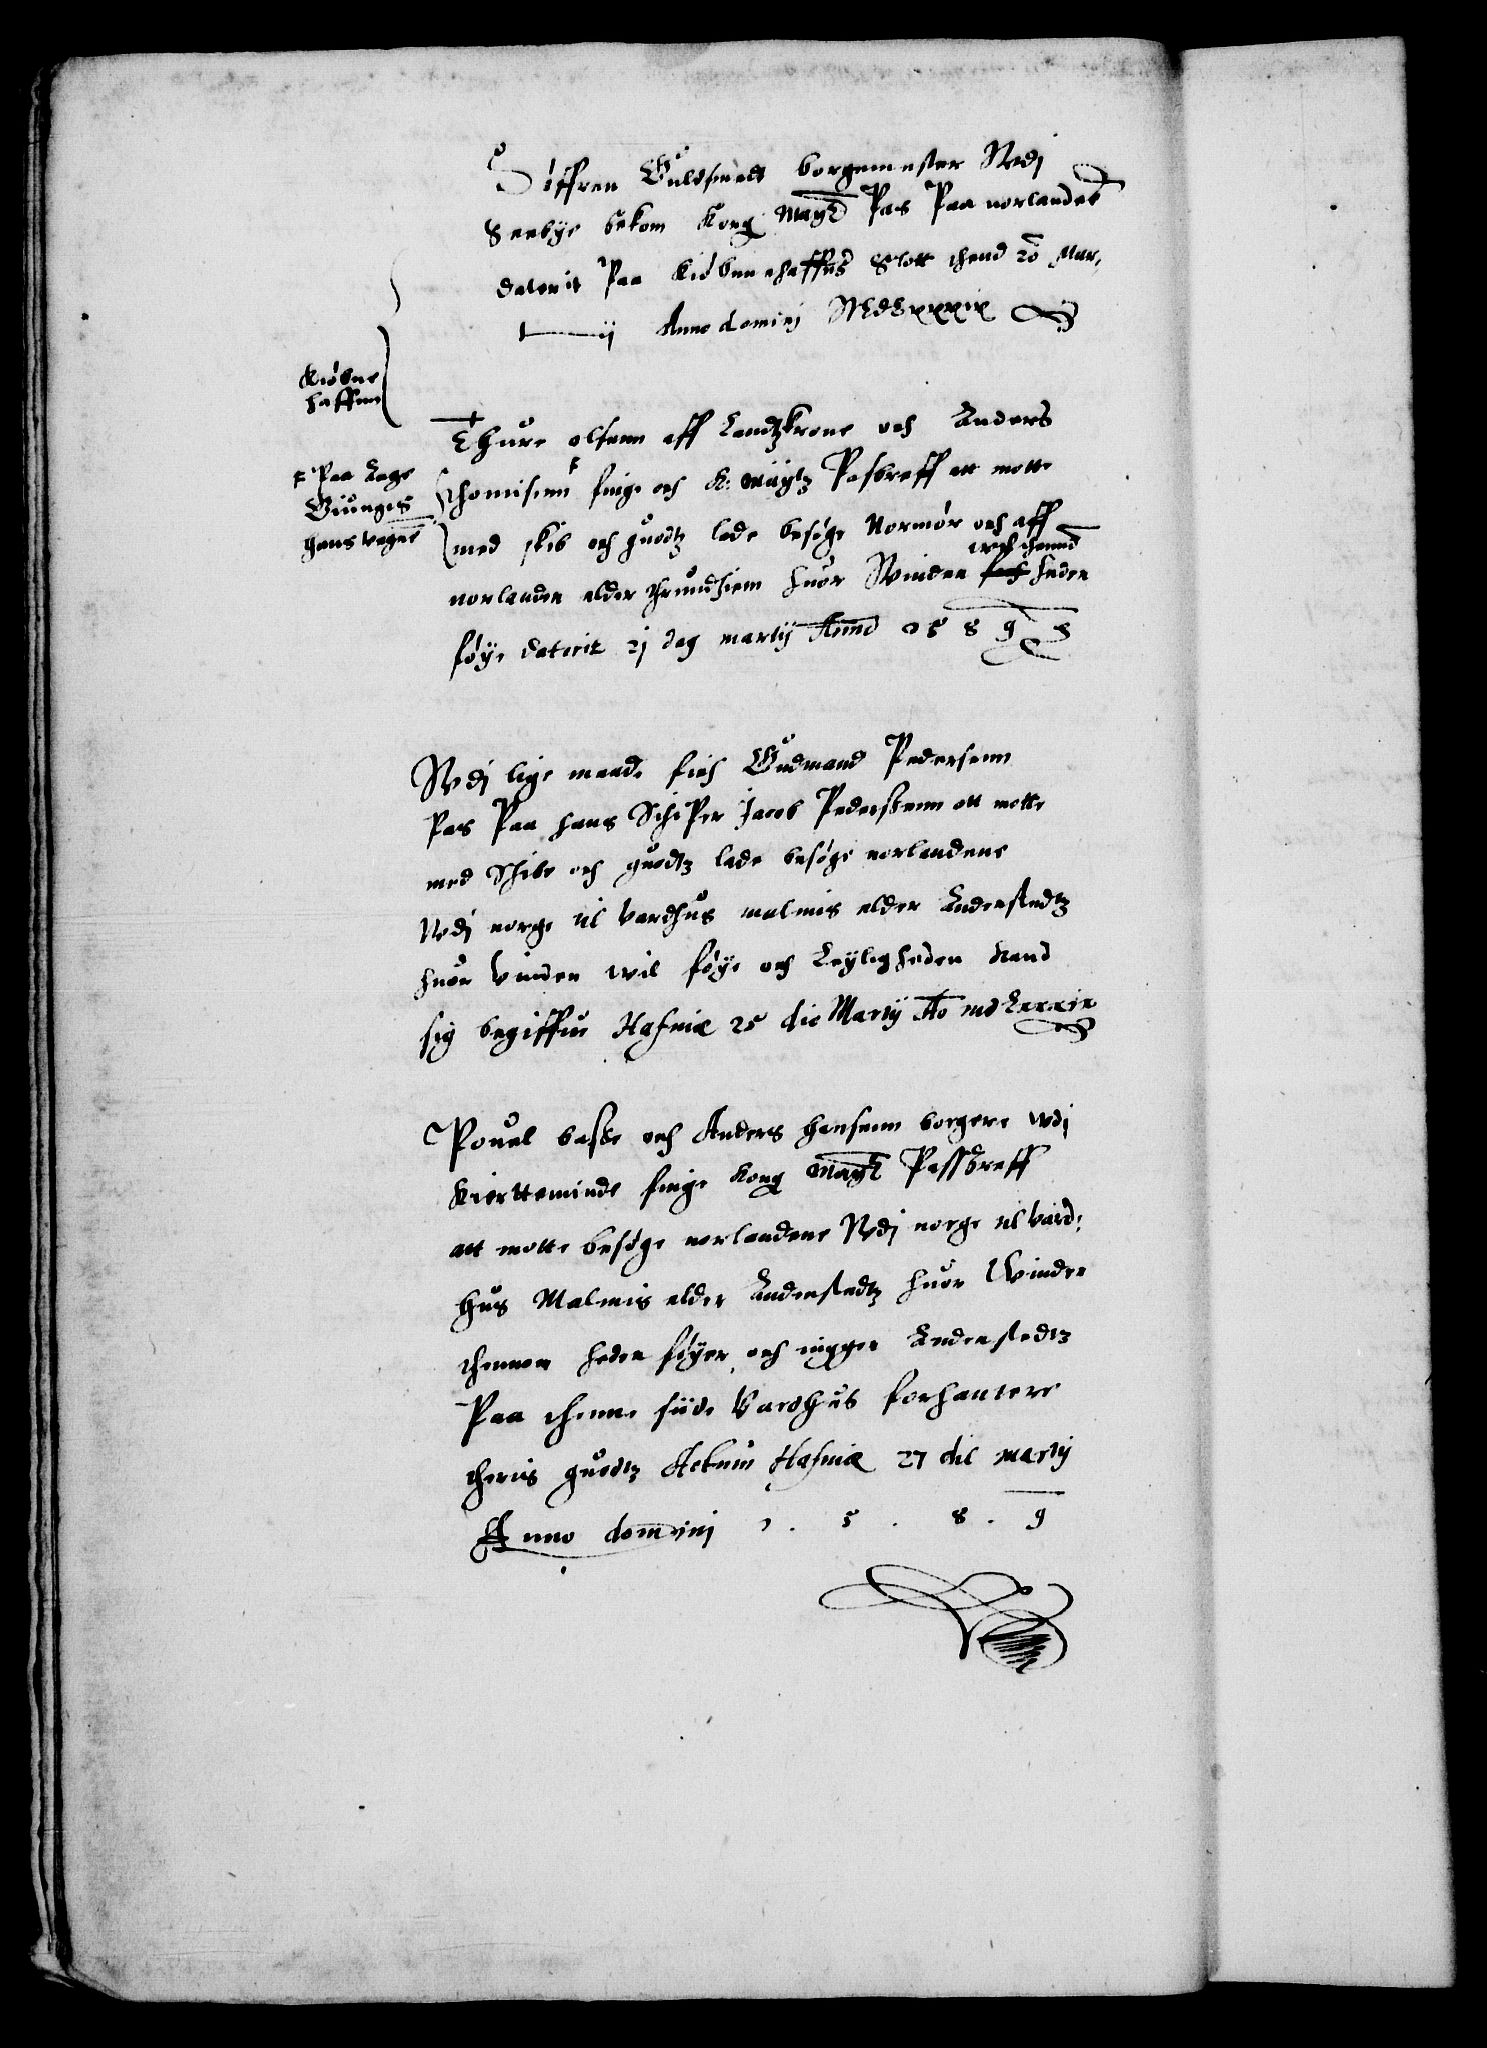 Søffren Guldsmedt borgemester Wdj
Seebye bekom Kong Maytt Pas Paa norlandet
daterit Paa Kiøbnehaffns Slott thend 20 Mar,
tij Anno dominj MDLxxxix
Kiøbne
haffnn
Thure olsenn aff Landtzkrone och Anders
Paa Lage
Giunges
hans vegne
Thomisenn finge och K: Maytz Pasbreff att motte
med skib och guodtz lade besøge Normør och aff
norlanden elder thrundhiem huor Winden heden
føye daterit 21 dag martij Anno 1589
Wdj lige maade fich Gudmand Pedersenn
Pas Paa hans Schiper Jacob Pederssenn att motte
med Schibe och guodtz lade besøge norlandene
Wdj norge til Vardhus malmis elder Anderstedtz
huor Vinden wil føye och Leyligheden kand
sig begiffue Hafniæ 25 die Martij Ao MDLxxxix
Pouel basse och Anders hansenn borgere wdj
Kierteminde finge Kong Maytt Passbreff
att motte besøge norlandene Wdj norge til Vard,
hus Malmis elder Anderstedtz huor Winden
thennom heden føyer, och ingger Anderstedtz
Paa thenne siide Vardhus forhantere
theris guodtz Actum Hafniæ 27 die martij
Anno dominj 1 . 5 . 8 . 9